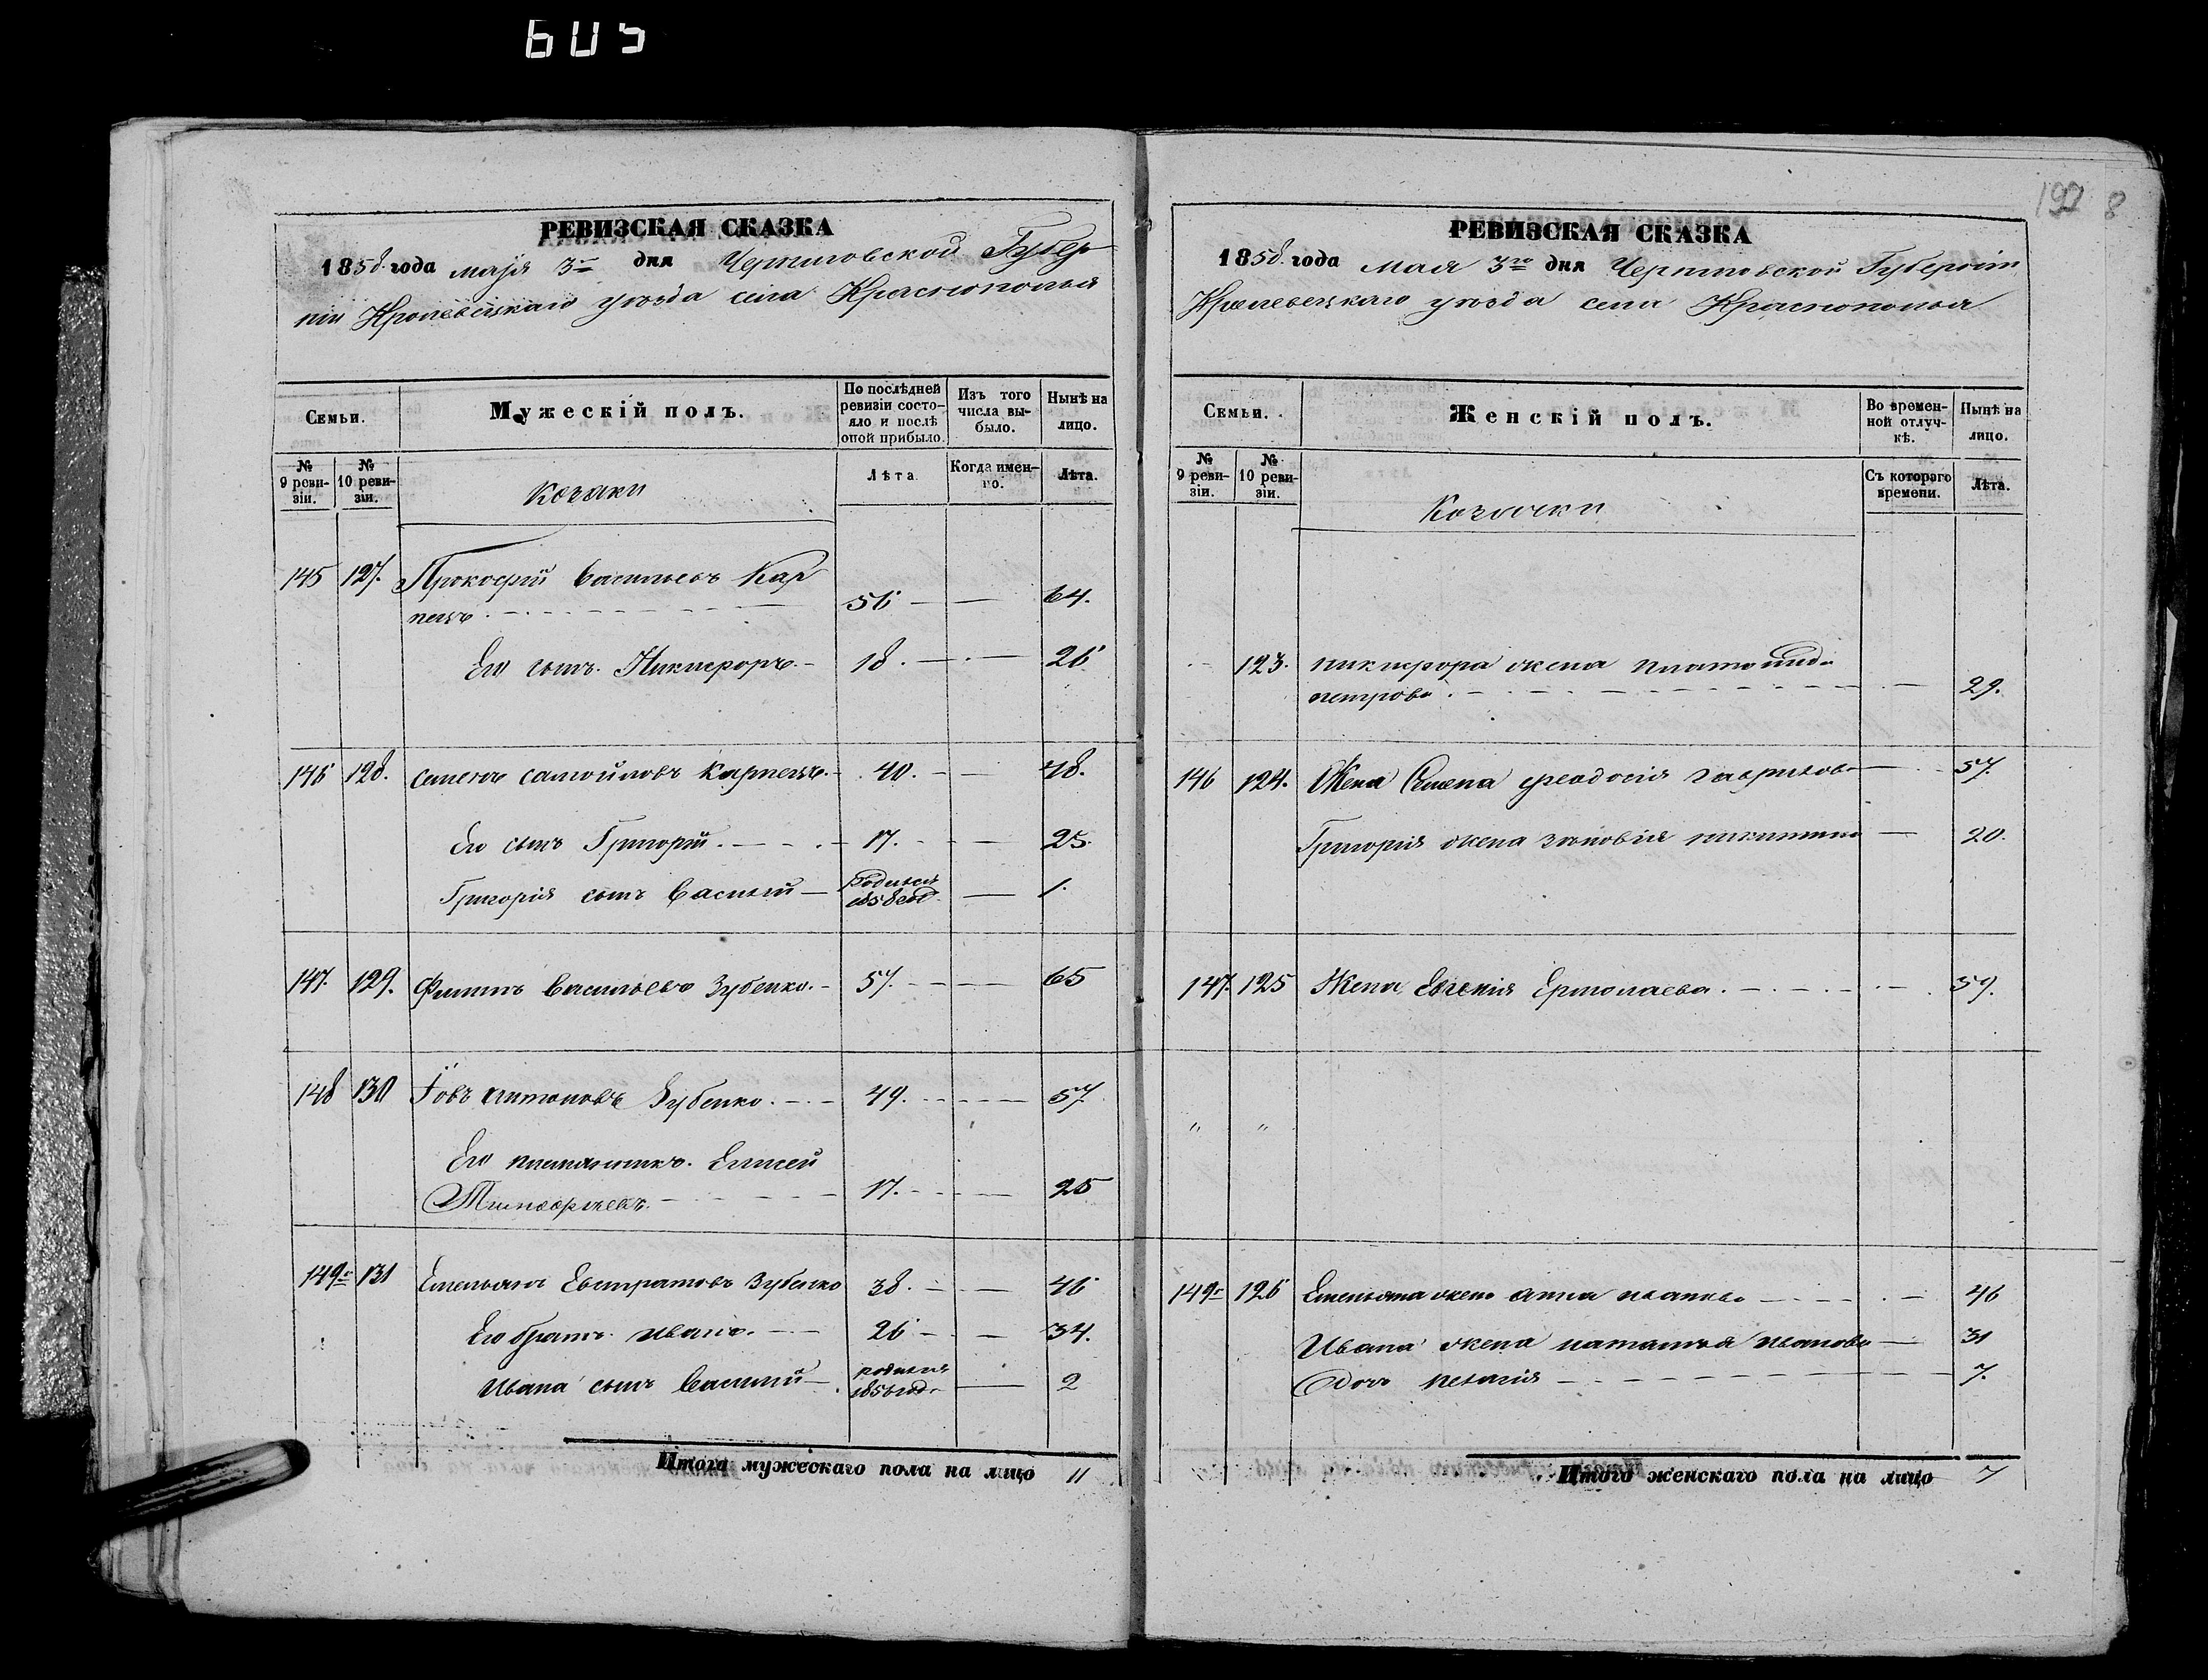 605
192 8
РЕВИЗСКАЯ СКАЗКА
1858 года маія 3го дня Черниговской Губер
ніи Кролевецкаго уѣзда села Краснополья
Семьи.
Мужескій полъ.
По послѣдней
ревизіи состо-
яло и послѣ
оной прибыло.
Изъ того
числа вы-
было.
Нынѣ на
лицо.
№
9 реви-
зіи.
№
10 реви-
зіи.
Козаки
Лѣта
Когда имен-
но.
Лѣта.
145 127. Прокофій Васильевъ Кар
пецъ. 56 64.
Его сынъ. Никифоръ. 18. 26
146 128. Семенъ Самойловъ Карпецъ. 40. 48.
Его сынъ Григорій. 17. 25.
Григорія сынъ Василий Родился
1858 год. 1.
147. 129. Филипъ Васильевъ Зубенко. 57. 65
148 130 Іовъ Антоновъ Зубенко. 49. 57.
Его племянникъ. Елисей
17. 25
149й 131 Емельянъ Евстратовъ Зубенко 38. 46
Его братъ Иванъ. 26 34.
Ивана сынъ Василий родился
2
Итого мужескаго пола на лицо 11
РЕВИЗСКАЯ СКАЗКА
1858 года Мая 3го дня Черниговской Губерніи
Кролевецкаго уѣзда села Краснополья
Семьи.
Женскій полъ.
Во времен-
ной отлуч-
кѣ.
Нынѣ на
лицо.
№
9 реви-
зіи.
№
10 реви-
зіи.
Козачки
Съ котораго
времени.
Лѣта.
123. Никифора жена
петрова. 29.
146 124. Жена Семена Феодосія Гаврилова 57.
Григорія жена Зѣновія Никитина 20.
147. 125 Жена Евгенія Ермолаева. 59.
" "
149й 126 Емельяна жена Анна Иванова 46
Ивана жена Наталія Иванова 31
Дочь Пелагія 7.
Итого женскаго пола на лицо 7